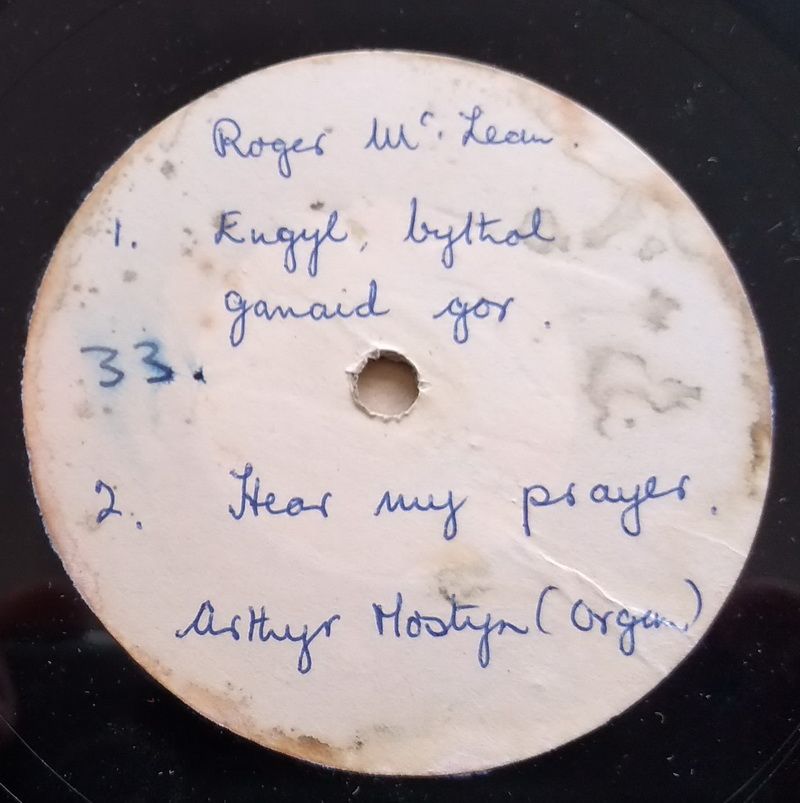 Roger Mc. Lean.
1. Engyl, bythol
ganaid gor.
33.
2. Hear my prayer.
Arthyr Mostyn (Organ)